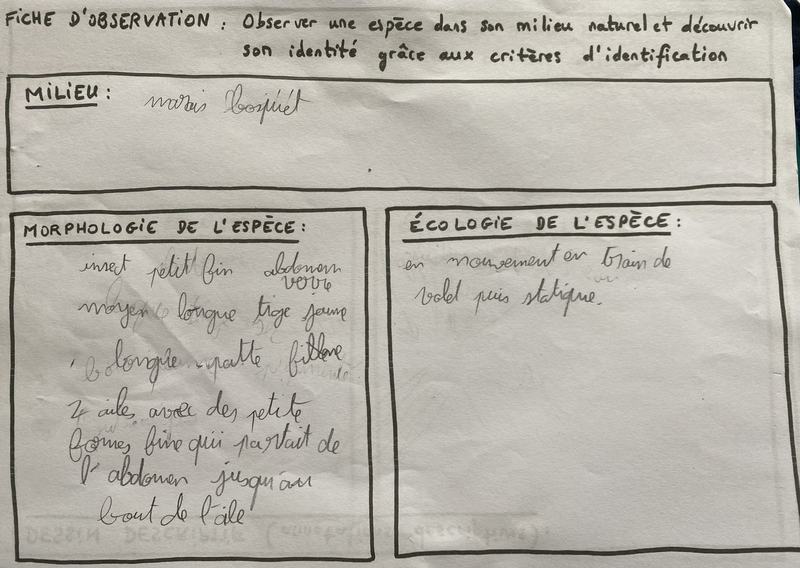 FICHE D'OBSERVATION : Observer une espèce dans son milieu naturel et découvrir
son identité grâce aux critères d'identification
MILIEU :
marais
MORPHOLOGIE DE L'ESPÈCE :
insect petit fin abdomen
moyen longue tige jaune
patte
4 ailes avec des petite
formes fine qui partait de
l'abdomen jusqu'au
bout de l'aile
ÉCOLOGIE DE L'ESPÈCE :
en mouvement en train de
volet puis statique.
DESSIN DESCRIPTIF (annotations descriptives) :